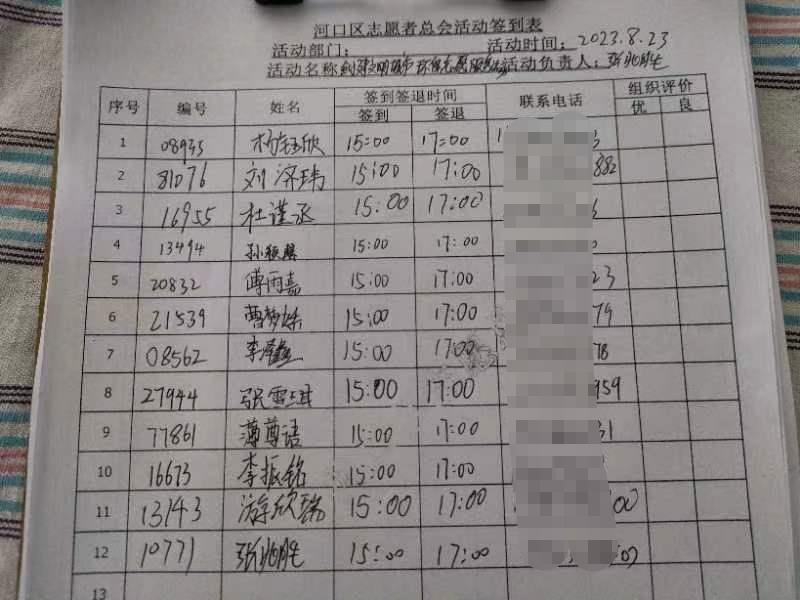 河口区志愿者总会活动签到表
活动部门: 活动时间: 2023.8.23
活动名称 创建文明城市 环保志愿服务活动 活动负责人: 张兆胜
序号 编号 姓名 签到签退时间 联系电话 组织评价
签到 签退 优 良
1 08933 杨钰欣 15:00 17:00 3
2 81076 刘济玮 15:00 17:00 882
3 16955 杜谨丞 15:00 17:00
4 13494 孙颖 15:00 17:00
5 20832 傅雨嘉 15:00 17:00 23
6 21539 曹梦姝 15:00 17:00 79
7 08562 李 15:00 17:00 78
8 27944 张雪琪 15:00 17:00 959
9 77861 薄尊语 15:00 17:00 31
10 16673 李振铭 15:00 17:00
11 13143 游欣瑞 15:00 17:00 00
12 10771 张兆胜 15:00 17:00
13